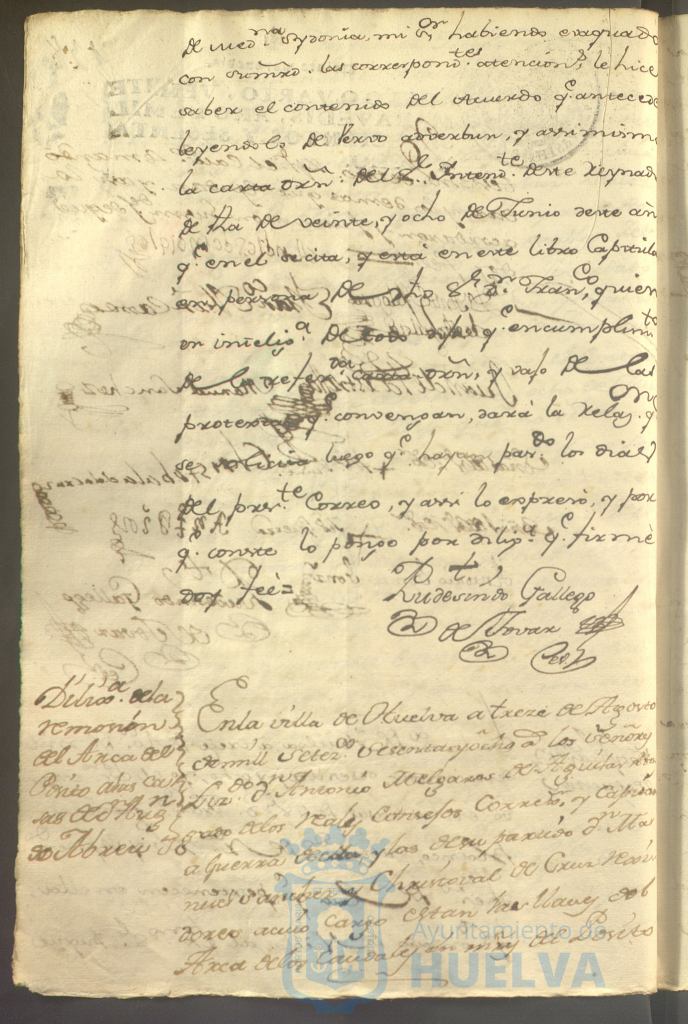 de Med.na Sydonia, mi S.or habiendo evaquado
con su mrd. las correspond.tes atencion.s, le hice
saber el contenido del Acuerdo q.e antecede
leyendolo de Vervo adverbun, y assimismo
la carta orn. del S.r Intend.te de este Reynado
de fha de veinte, y ocho de Junio de este añ
q.e en el se cita, y está en este libro Capitula
en persona de dho S.or D.n Fran.co, quien
en intelig.a de todo dijo q.e en cumplim.to
de la referida orn, y vajo de las
protestas q.e convengan, dará la relaz.on q.e
se solicita luego q.e hayan pas.do los dias
del pres.te Correo, y assi lo expresó, y por
q.e conste lo pongo por dilig.a q.e firmé
doy feé=
Rudesindo Gallego
de Tovar
Dilig.a de la
remosion
del Arca del
Posito a las casas
de d.n Ang
de Abreu
En la villa de Huelva a treze de Agosto
de mil setez.os sesenta y ocho a.s los Señores
Liz.do d.n Antonio Melgarejo de Aguilar Abo
gado de los reales Consejos Correx.or y Capitan
a Guerra de esta y las de su partido d.n Ma
nuel Sanchez y Christoval de Cruz
dores a cuio cargo estan tres llaves del
Arca de los Caudales en mrs del Posito
Ayuntamiento de
HUELVA